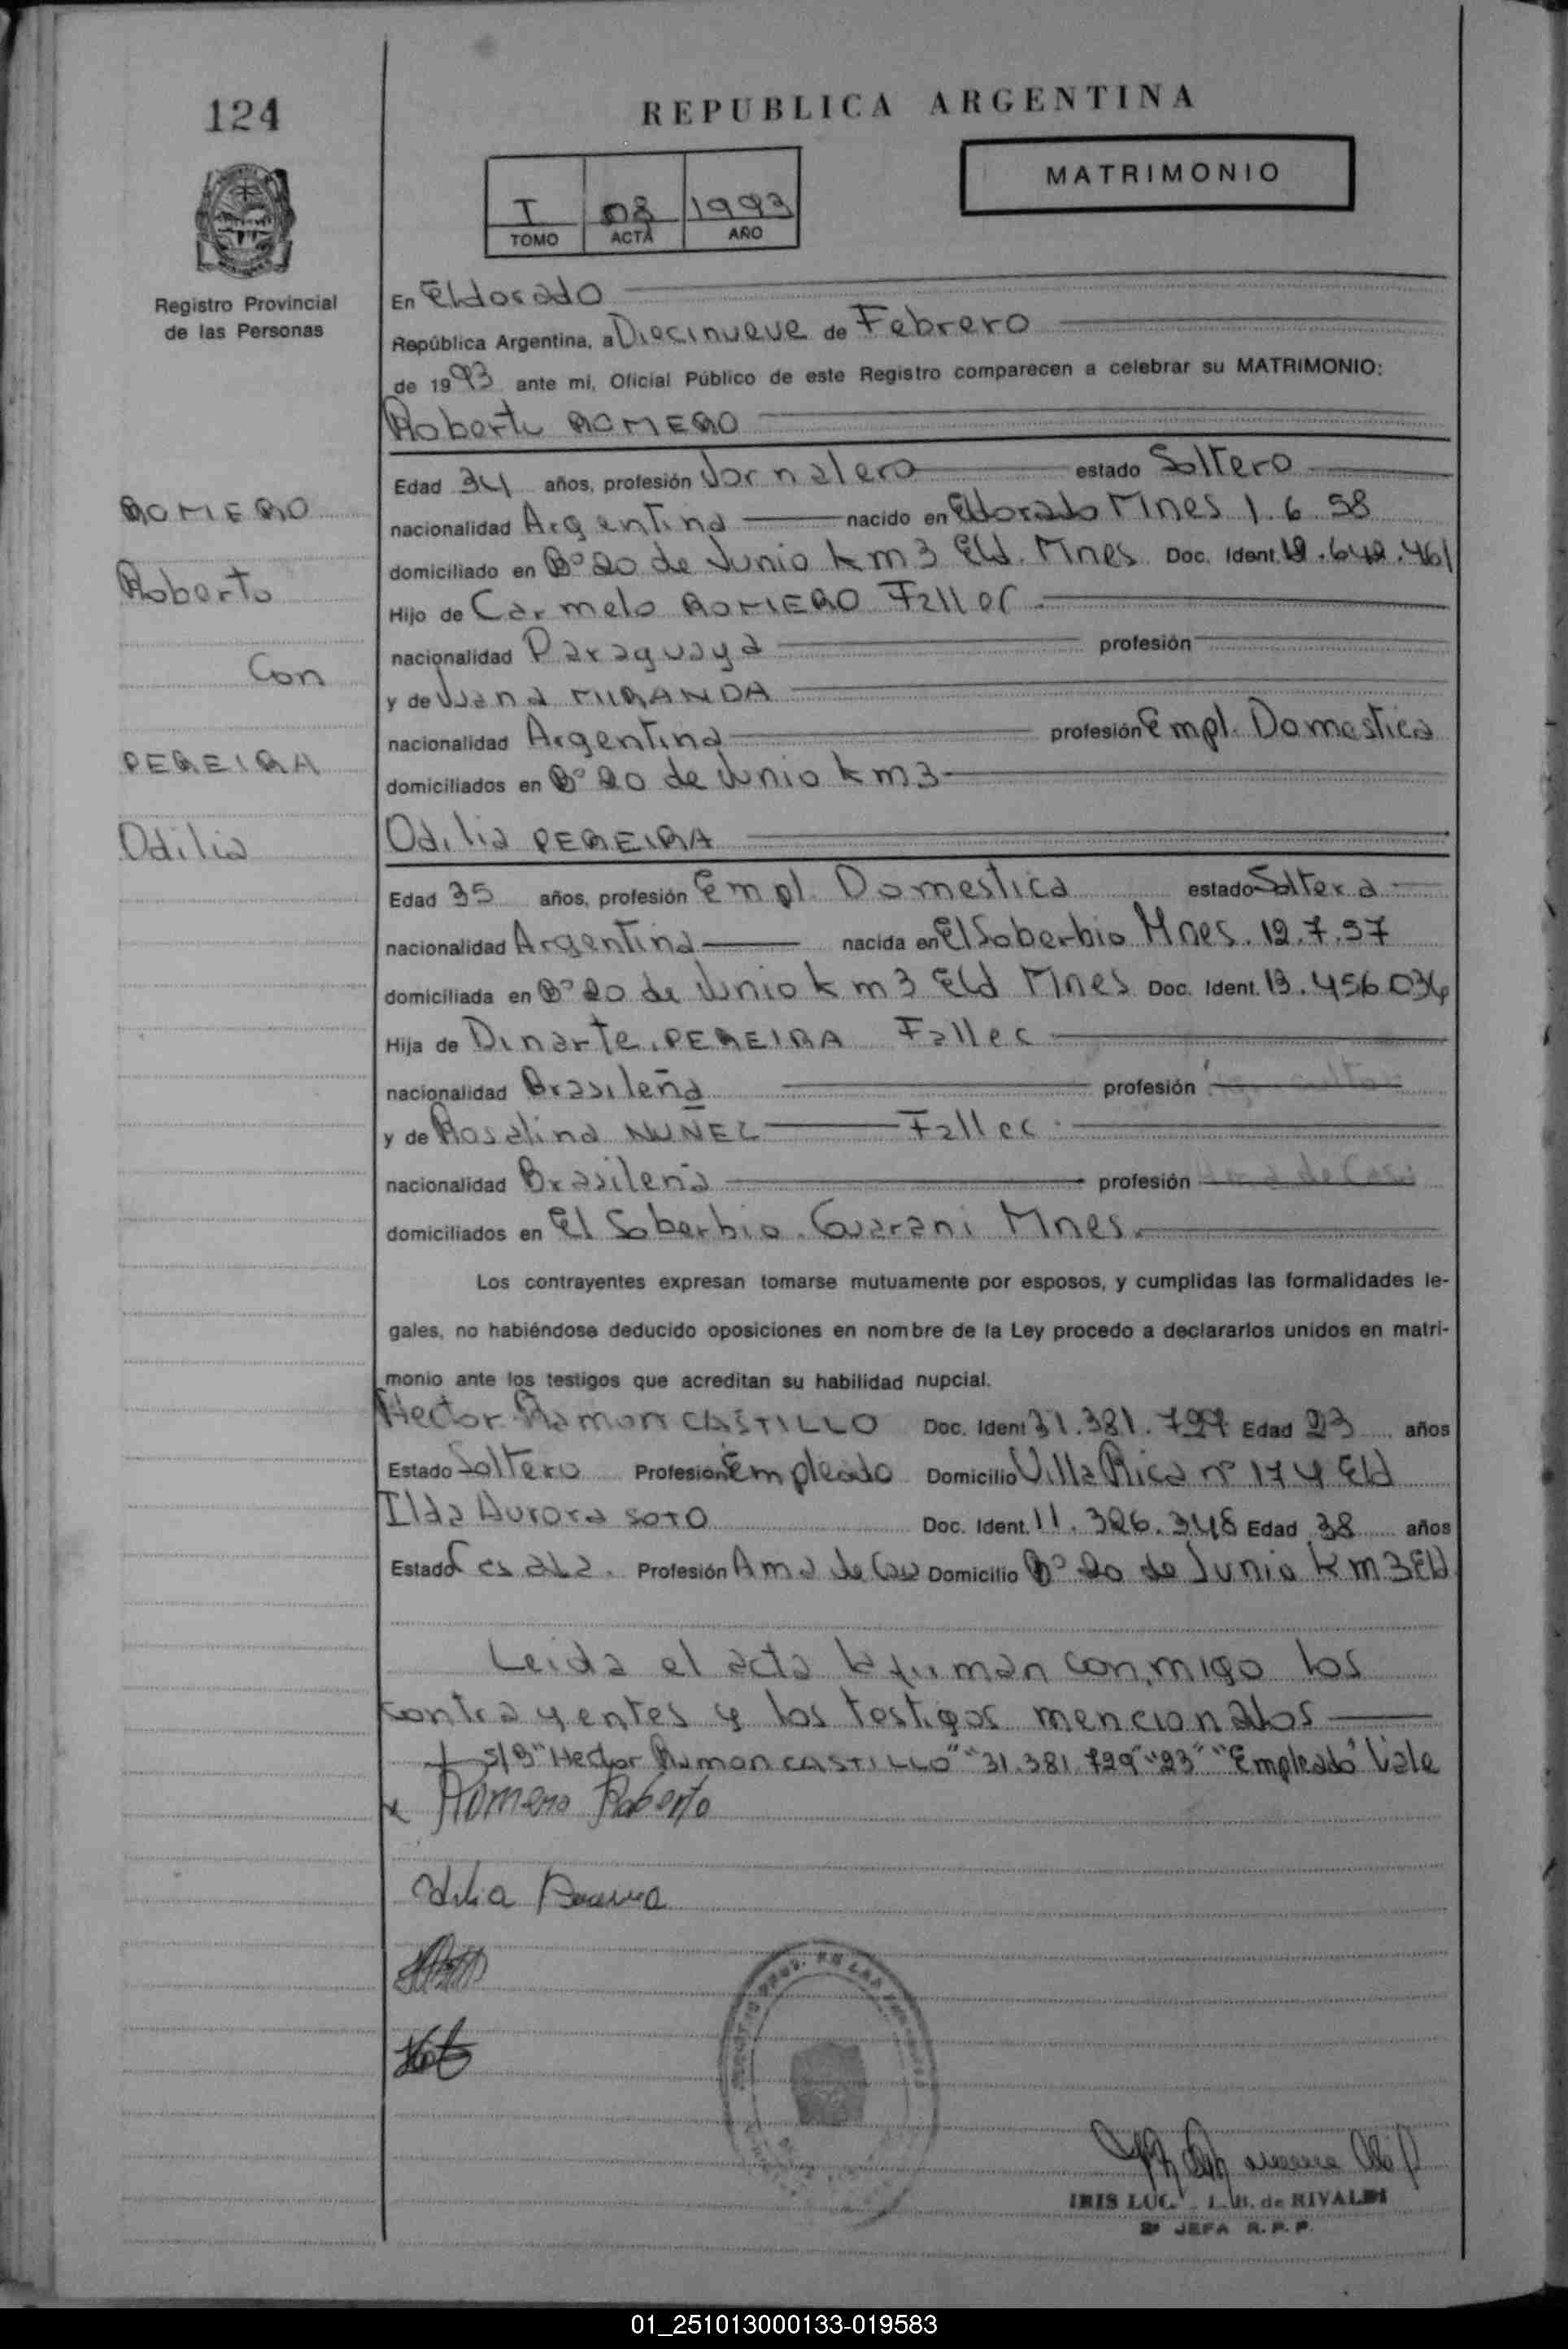 124
REPUBLICA ARGENTINA
MATRIMONIO
I 08 1993
TOMO ACTA AÑO
Registro Provincial
de las Personas
En Eldorado
República Argentina, a Diecinueve de Febrero
de 1993 ante mi, Oficial Público de este Registro comparecen a celebrar su MATRIMONIO:
Roberto ROMERO
Edad 34 años, profesión Jornalero estado Soltero
ROMERO
nacionalidad Argentina nacido en Eldorado Mnes 1.6.58
domiciliado en B° 20 de Junio km 3 Eld. Mnes. Doc. Ident. 12.642.461
Roberto
Hijo de Carmelo ROMERO Fallec
nacionalidad Paraguaya profesión
Con
y de Juana MIRANDA
nacionalidad Argentina profesión Empl. Domestica
PEREIRA
domiciliados en B° 20 de Junio km 3
Odilia
Odilia PEREIRA
Edad 35 años, profesión Empl. Domestica estado Soltera
nacionalidad Argentina nacida en El Soberbio Mnes. 12.7.57
domiciliada en B° 20 de Junio km 3 Eld Mnes Doc. Ident. 13.456.034
Hija de Dinarte PEREIRA Fallec
nacionalidad Brasileña profesión
y de Rosalina NUÑEZ Fallec.
nacionalidad Brasileña profesión Ama de Casa
domiciliados en El Soberbio. Guarani Mnes.
Los contrayentes expresan tomarse mutuamente por esposos, y cumplidas las formalidades le-
gales, no habiéndose deducido oposiciones en nombre de la Ley procedo a declararlos unidos en matri-
monio ante los testigos que acreditan su habilidad nupcial.
Hector Ramon CASTILLO Doc. Ident 31.381.729 Edad 23 años
Estado Soltero Profesión Empleado Domicilio Villa Rica n° 174 Eld
Ilda Aurora SOTO Doc. Ident. 11.326.348 Edad 38 años
Estado Casada. Profesión Ama de Casa Domicilio B° 20 de Junio km 3 Eld
Leida el acta la firman conmigo los
contrayentes y los testigos mencionados
s/B "Hector Ramon CASTILLO" "31.381.729" "23" "Empleado" Vale
x Romero Roberto
Odilia Pereira
IRIS LUC. L. B. de RIVALDI
2ª JEFA R.P.P.
01_251013000133-019583